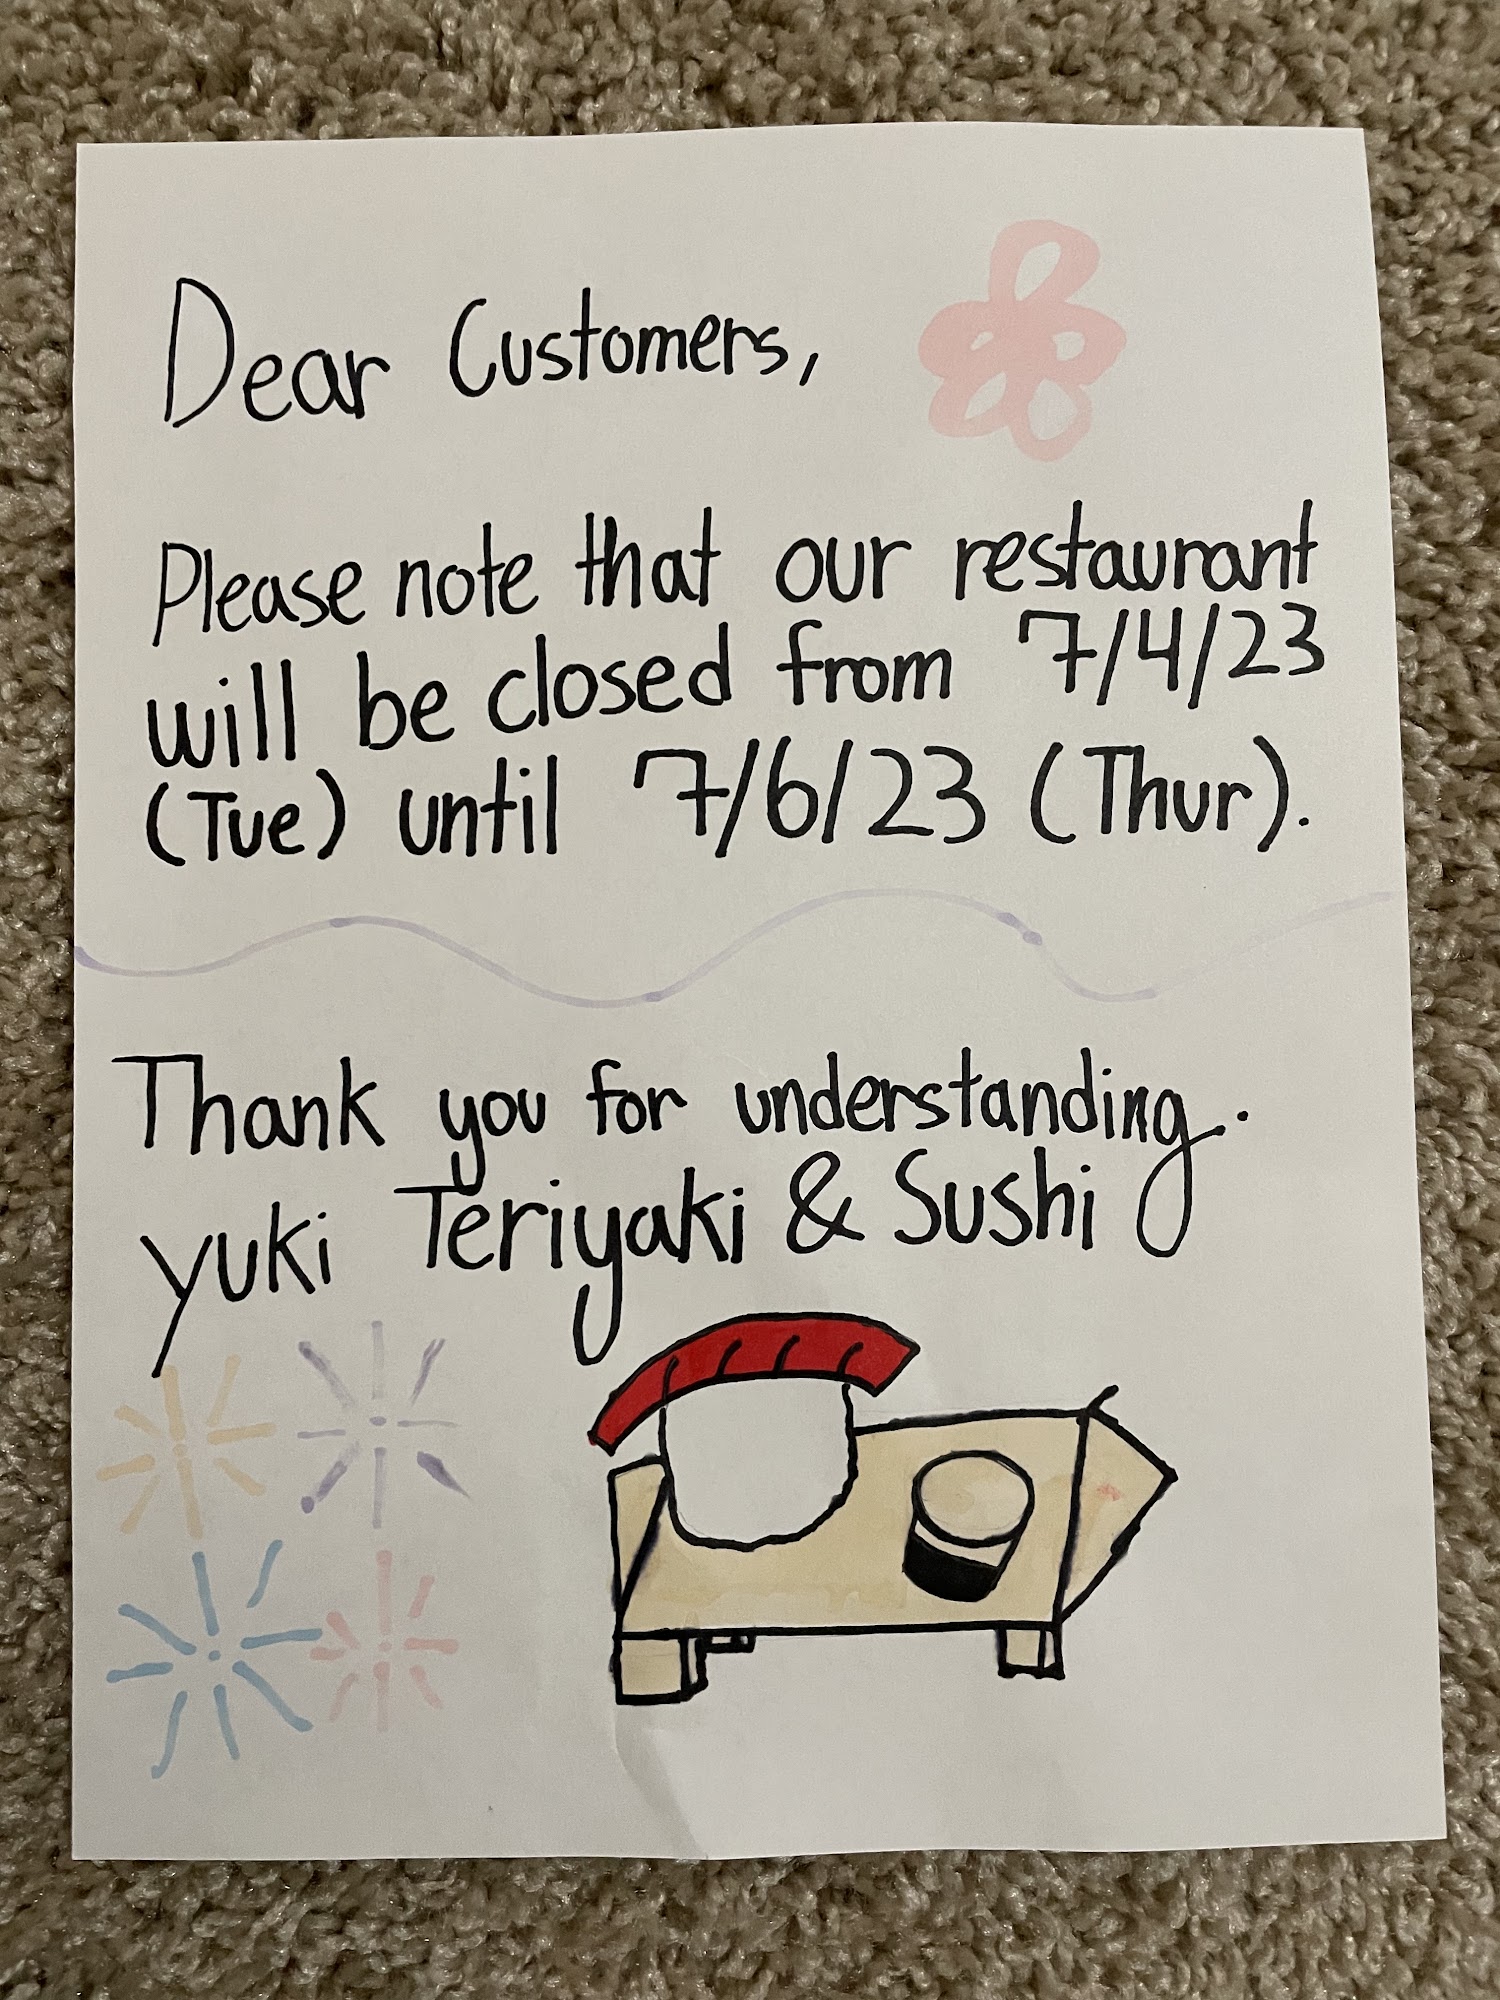 Dear Customers,
Please note that our restaurant
will be closed from 7/4/23
(Tue) until 7/6/23 (Thur).
Thank you for understanding.
yuki Teriyaki & Sushi